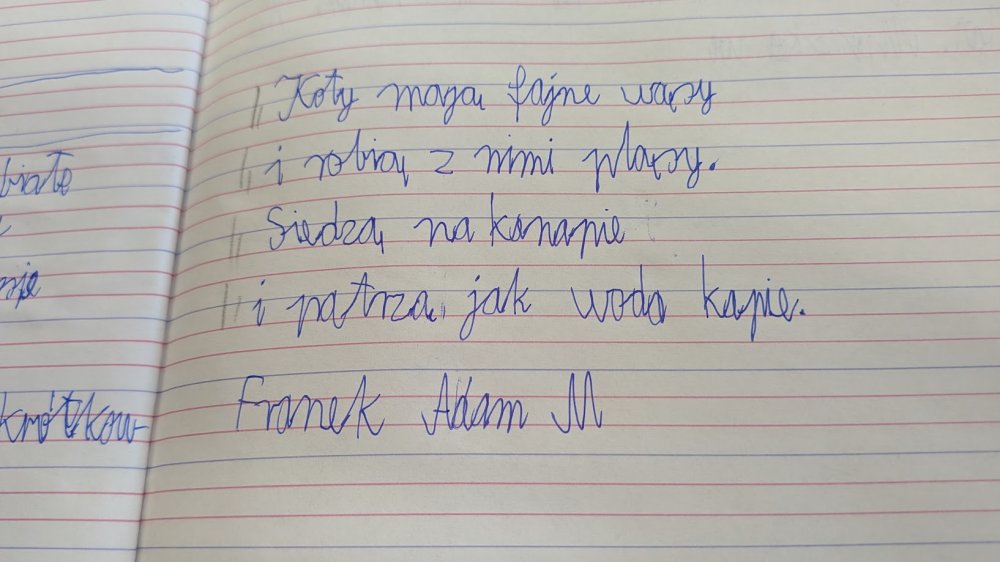 białe
krótkow-
Koty mają fajne wąsy
i robią z nimi pląsy.
Siedzą na kanapie
i patrzą, jak woda kapie.
Franek Adam M